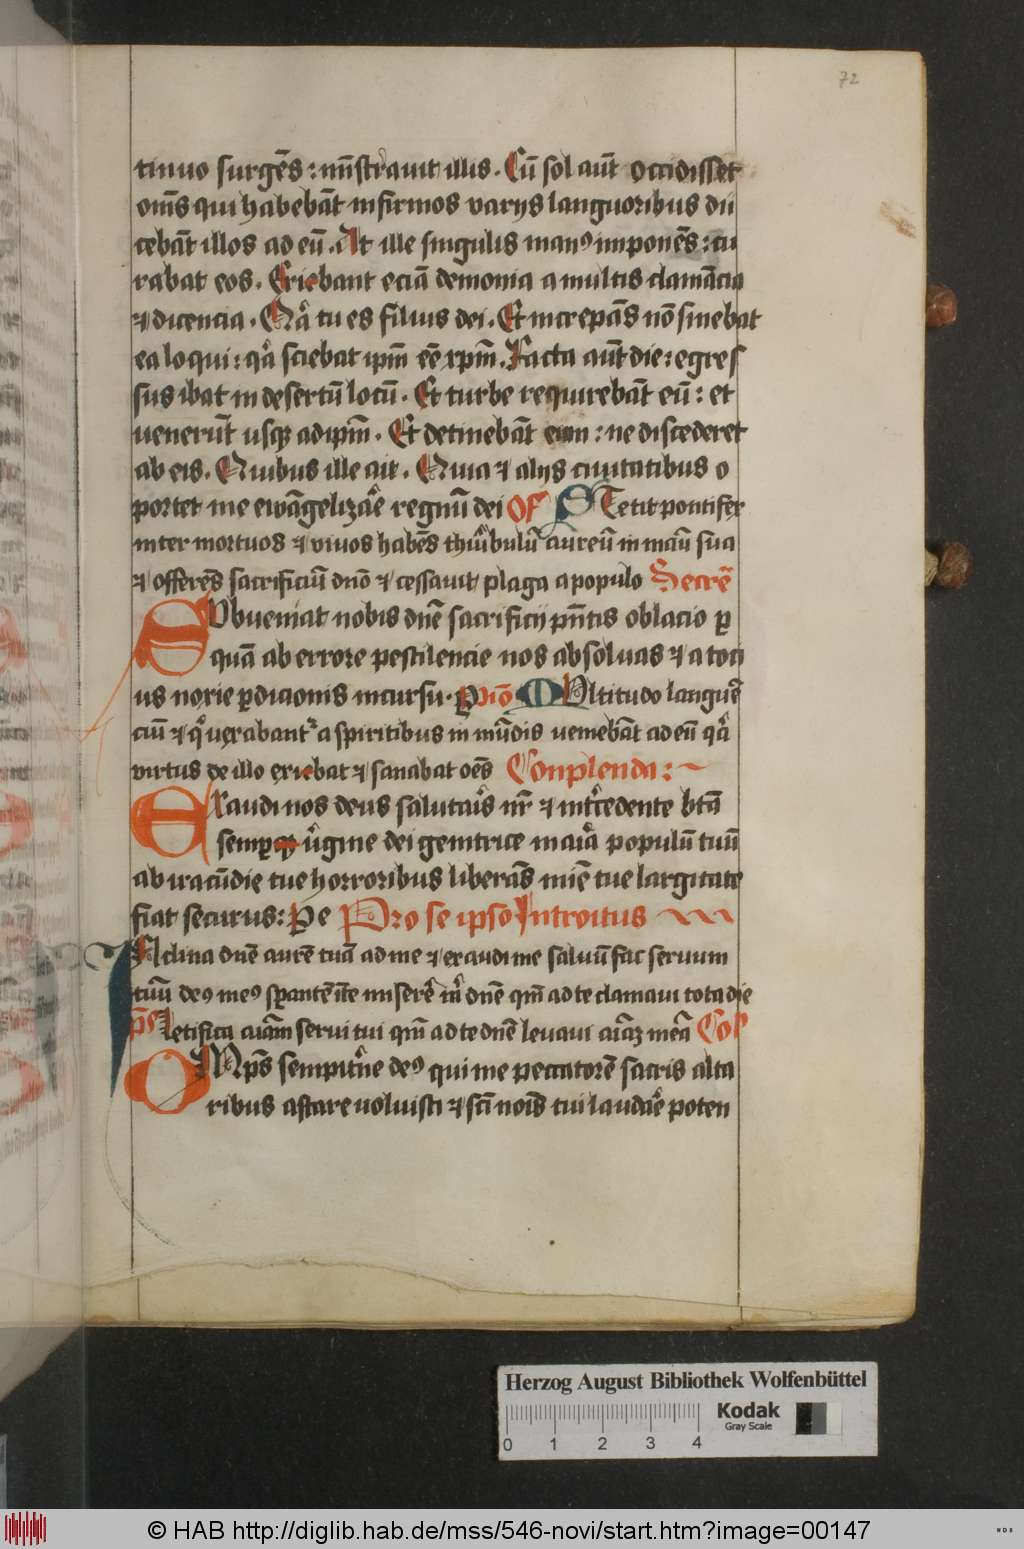 72
tinuo surgēs : mīstrauit illis . Cū sol aūt occidisset
om̄s qui habebāt infirmos varijs languoribus du
cebāt illos ad eū . At ille singulis manꝰ imponēs : cu
rabat eos . Exiebant eciā demonia a multis clamācia
⁊ dicencia . Quͣ tu es filius dei . Et increpās nō sinebat
ea loqui : qͣ sciebat ipm̄ eē xpm̄ . Facta aūt die : egres
sus ibat in desertū locū . Et turbe requirebāt eū : et
venerūt usqꝫ ad ipm̄ . Et detinebāt eum : ne discederet
ab eis . Quibus ille ait . Quia ⁊ alijs ciuitatibus o
portet me ewāgelizar̄e regnū dei Of Stetit pontifex
inter mortuos ⁊ viuos habēs thuͥbulū aureū in manū sua
⁊ offerēs sacrificiū dn̄o ⁊ cessauit plaga a populo Secre᷑
Subueniat nobis dn̄e sacrificij pn̄tis oblacio ꝑ
quā ab errore pestilencie nos absoluas ⁊ a toci
us noxie ꝑdicionis incursu . Cōio Multitudo languē
ciū ⁊ qͥ vexabant᷑ a spiritibus inmūdis veniebāt ad eū qͣ
virtus de illo exiebat ⁊ sanabat oēs Conplenda :
Exaudi nos deus salutaris nr̄ ⁊ int᷑cedente btā
semꝑ vͥgine dei genitrice mariͣa populū tuū
ab iracūdie tue horroribus liberās mīe tue largitate
fiat securus : Pe Pro se ipso Introitus
Inclina dn̄e aurē tuā ad me ⁊ exaudi me saluū fac seruum
tuū deꝰ meꝰ sꝑantē ī te miserē mͥ dn̄e qm̄ ad te clamaui tota die
ps̄ Letifica aīam serui tui qm̄ ad te dn̄e leuaui aīaꝫ meā Col
Omps̄ sempit᷑ne deꝰ qui me peccatorē sacris alta
ribus astare voluisti ⁊ scī nois̄ tui laudar̄e poten
Herzog August Bibliothek Wolfenbüttel
Kodak
Gray Scale
0 1 2 3 4
© HAB http://diglib.hab.de/mss/546-novi/start.htm?image=00147